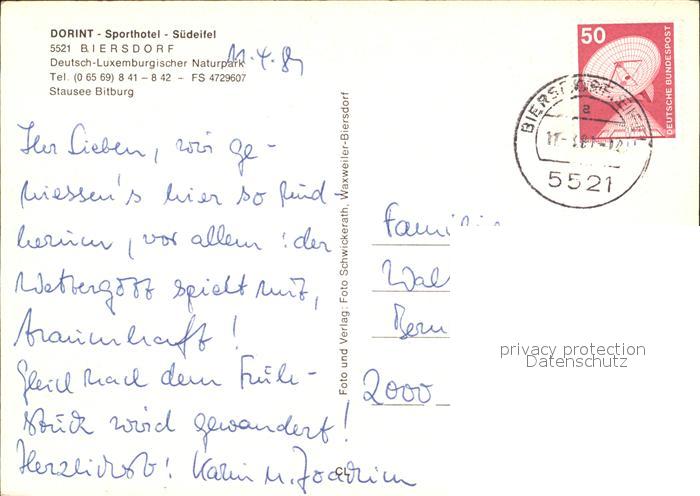 DORINT - Sporthotel - Südeifel
5521 BIERSDORF
Deutsch-Luxemburgischer Naturpark
Tel. (0 65 69) 8 41 – 8 42 - FS 4729607
Stausee Bitburg
11.4.81
Ihr Lieben, wir ge-
niessen's hier so rund-
herum, vor allem: der
Wettergott spielt mit,
traumhaft!
Gleich nach dem Früh-
stück wird gewandert!
Herzlichst! Karin u. Joachim
Foto und Verlag: Foto Schwickerath, Waxweiler-Biersdorf
CL
50
DEUTSCHE BUNDESPOST
BIERSDORF
a
5521
Famili
Wal
Bern
2000
privacy protection
Datenschutz